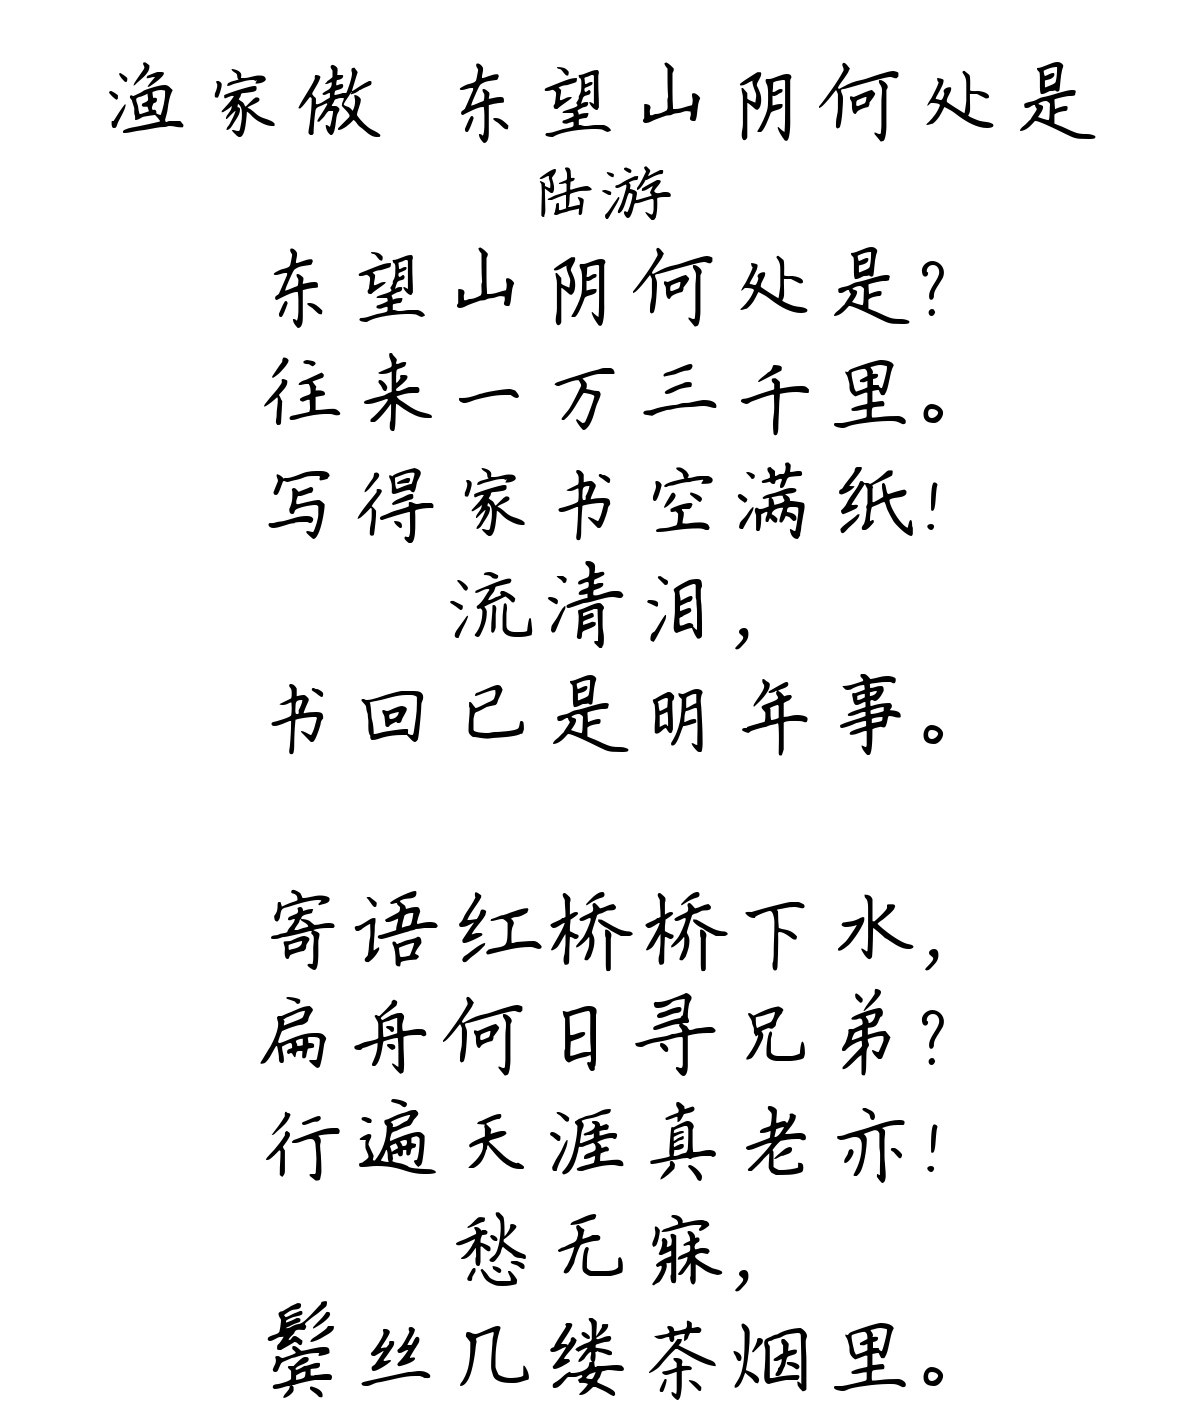 渔家傲 东望山阴何处是
陆游
东望山阴何处是？
往来一万三千里。
写得家书空满纸！
流清泪，
书回已是明年事。
寄语红桥桥下水，
扁舟何日寻兄弟？
行遍天涯真老亦！
愁无寐，
鬓丝几缕茶烟里。